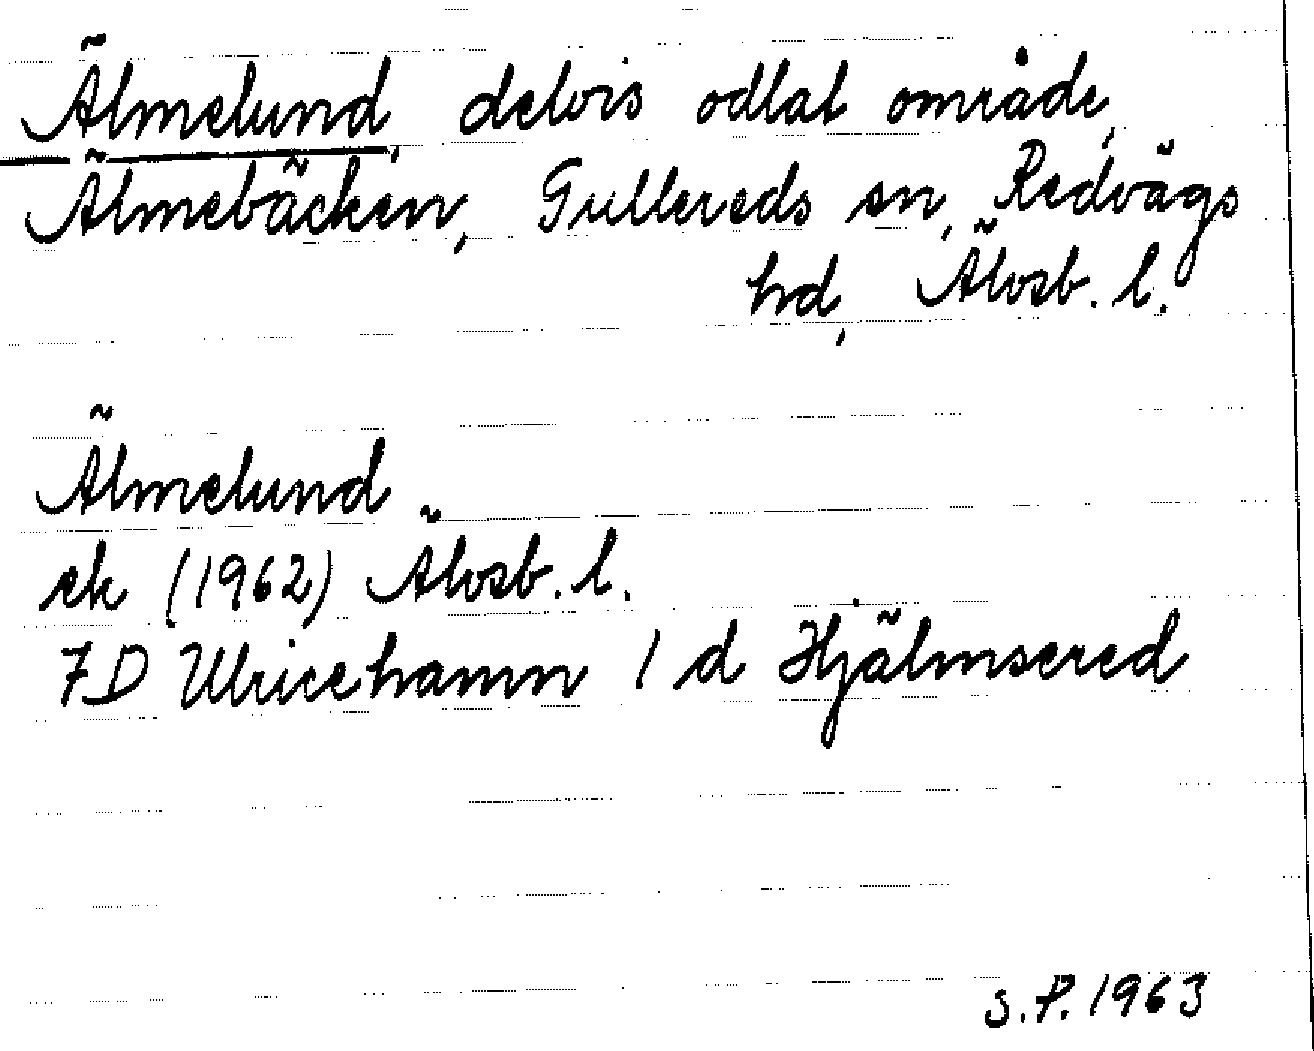 Älmelund, delvis odlat område,
Älmebäcken, Gullereds sn, Redvägs
hd, Älvsb. l.
Älmelund
ek (1962) Älvsb. l.
7D Ulricehamn 1 d Hjälmsered
S.P. 1963